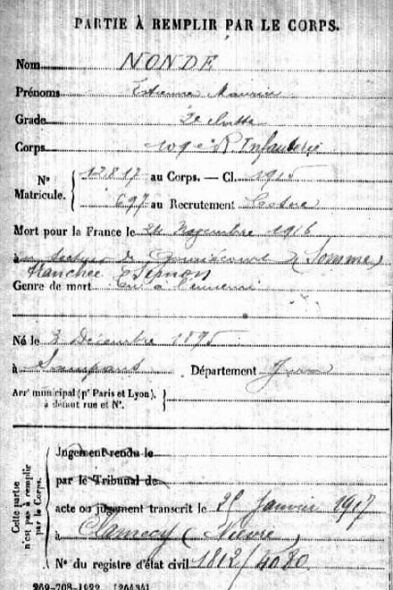 PARTIE À REMPLIR PAR LE CORPS.
Nom NONDE
Prénoms Etienne Maurice
Grade 2e classe
Corps R Infanterie
N° Matricule. 12817 au Corps. — Cl. 1915
697 au Recrutement
Mort pour la France le 24 Novembre 1916
à secteur de (Somme)
tranchée
Genre de mort Tué à l'ennemi
Né le 3 Décembre 1895
à Sampans Département Jura
Arrt municipal (pr Paris et Lyon),
à défaut rue et N°.
Cette partie n'est pas à remplir par le Corps.
Jugement rendu le
par le Tribunal de
acte ou jugement transcrit le 25 Janvier 1917
à Clamecy (Nièvre)
N° du registre d'état civil 1812/4080